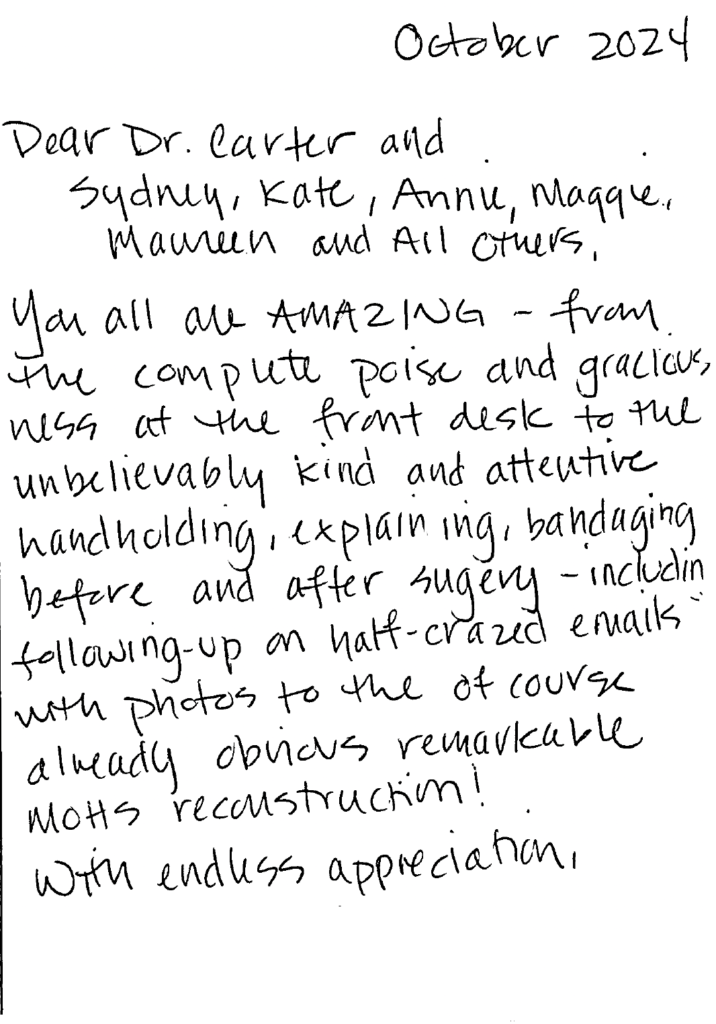 October 2024
Dear Dr. Carter and
Sydney, Kate, Annie, Maggie,
Maureen and All Others,
You all are AMAZING - from
the complete poise and gracious,
ness at the front desk to the
unbelievably kind and attentive
handholding, explaining, bandaging
before and after sugery - includin
following-up on half-crazed emails
with photos to the of course
already obvious remarkable
MOHS reconstruction!
With endless appreciation,